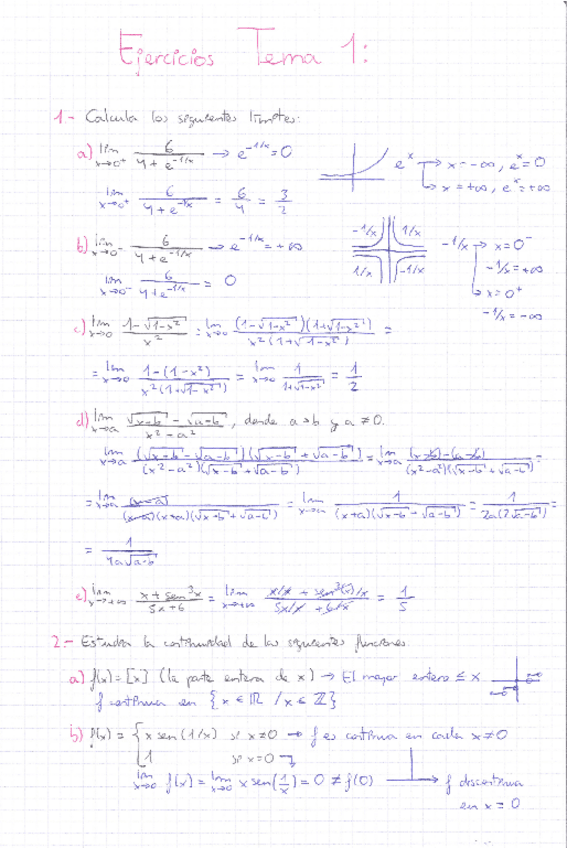 Ejercicios Tema 1:
1.- Calcula los siguientes límites:
a) lim x→0⁺ 6/(4+e^(-1/x)) → e^(-1/x) = 0
e^x → x = -∞, e^x = 0
↳ x = +∞, e^x = +∞
lim x→0⁺ 6/(4+e^(-1/x)) = 6/4 = 3/2
b) lim x→0⁻ 6/(4+e^(-1/x)) → e^(-1/x) = +∞
-1/x 1/x
1/x -1/x
-1/x → x = 0⁻
-1/x = +∞
↳ x = 0⁺
-1/x = -∞
lim x→0⁻ 6/(4+e^(-1/x)) = 0
c) lim x→0 (1-√(1-x²))/x² = lim x→0 (1-√(1-x²))(1+√(1-x²))/(x²(1+√(1-x²))) =
= lim x→0 (1-(1-x²))/(x²(1+√(1-x²))) = lim x→0 1/(1+√(1-x²)) = 1/2
d) lim x→a (√(x-b) - √(a-b))/(x²-a²), donde a>b y a≠0.
lim x→a (√(x-b) - √(a-b))(√(x-b) + √(a-b))/((x²-a²)(√(x-b) + √(a-b))) = lim x→a ((x-b)-(a-b))/((x²-a²)(√(x-b) + √(a-b))) =
= lim x→a (x-a)/((x-a)(x+a)(√(x-b) + √(a-b))) = lim x→a 1/((x+a)(√(x-b) - √(a-b))) = 1/(2a(2√(a-b))) =
= 1/(4a√(a-b))
e) lim x→+∞ (x + sen³x)/(5x+6) = lim x→+∞ (x/x + sen³(x)/x)/(5x/x + 6/x) = 1/5
2.- Estudia la continuidad de las siguientes funciones.
a) f(x) = [x] (la parte entera de x) → El mayor entero ≤ x
f continua en {x ∈ ℝ / x ∈ ℤ}
b) f(x) = { x sen(1/x) si x≠0 → f es continua en cada x≠0
1 si x=0
lim x→0 f(x) = lim x→0 x sen(1/x) = 0 ≠ f(0) → f discontinua
en x = 0